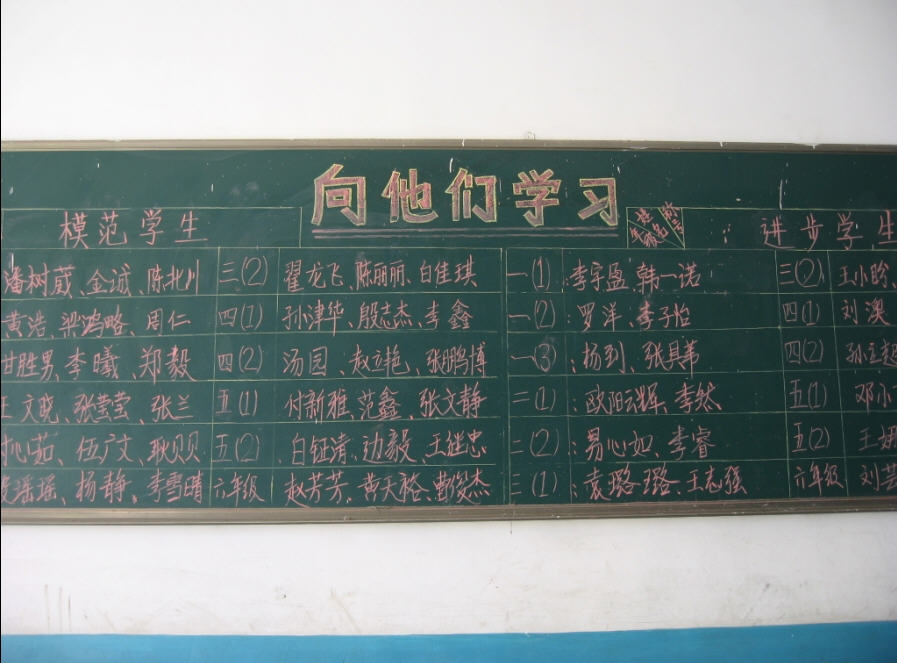 向他们学习
模范学生 进步学生
树 金诚、陈 三(2) 翟龙飞、陈丽丽、白佳琪 一(1) :李宇盈、韩一诺 三(2) 王小
黄浩、梁鸿略、周仁 四(1) 孙津华、殷志杰、李鑫 一(2) :罗洋、李子怡 四(1) 刘澳
甘胜男、李曦、郑毅 四(2) 汤园、赵立艳、张鹏博 一(3) :杨到、张具 四(2) 孙
文 张莹莹、张兰 五(1) 付新雅、范鑫、张文静 二(1) :欧阳云辉、李然 五(1) 邓小
心茹、伍广文、耿贝贝 五(2) 白钰清、边毅、王继忠 二(2) :易心如、李睿 五(2) 王
瑶、杨静、李雪晴 六年级 赵芳芳、黄天裕、曹俊杰 二(1) :袁璐璐、王志强 六年级 刘芸